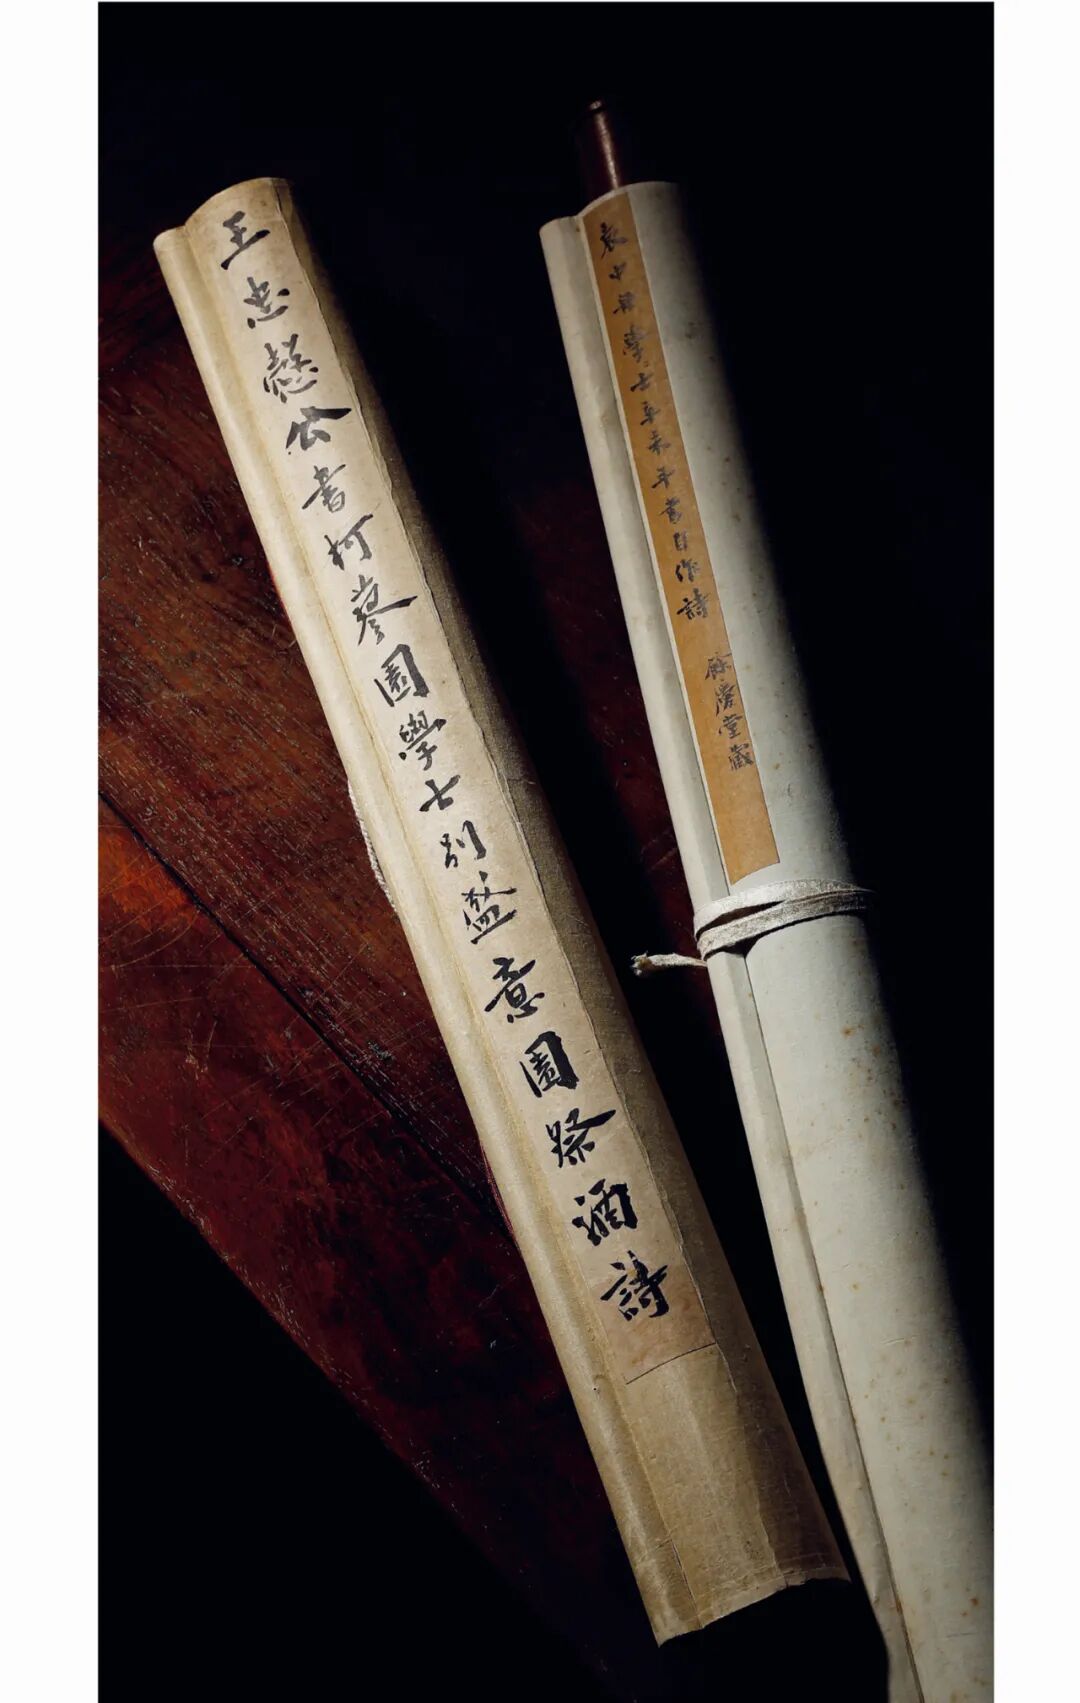 王忠愨公書柯蓼園學士別意園祭酒詩
袁中舟學士辛未年書自作詩 餘慶堂藏